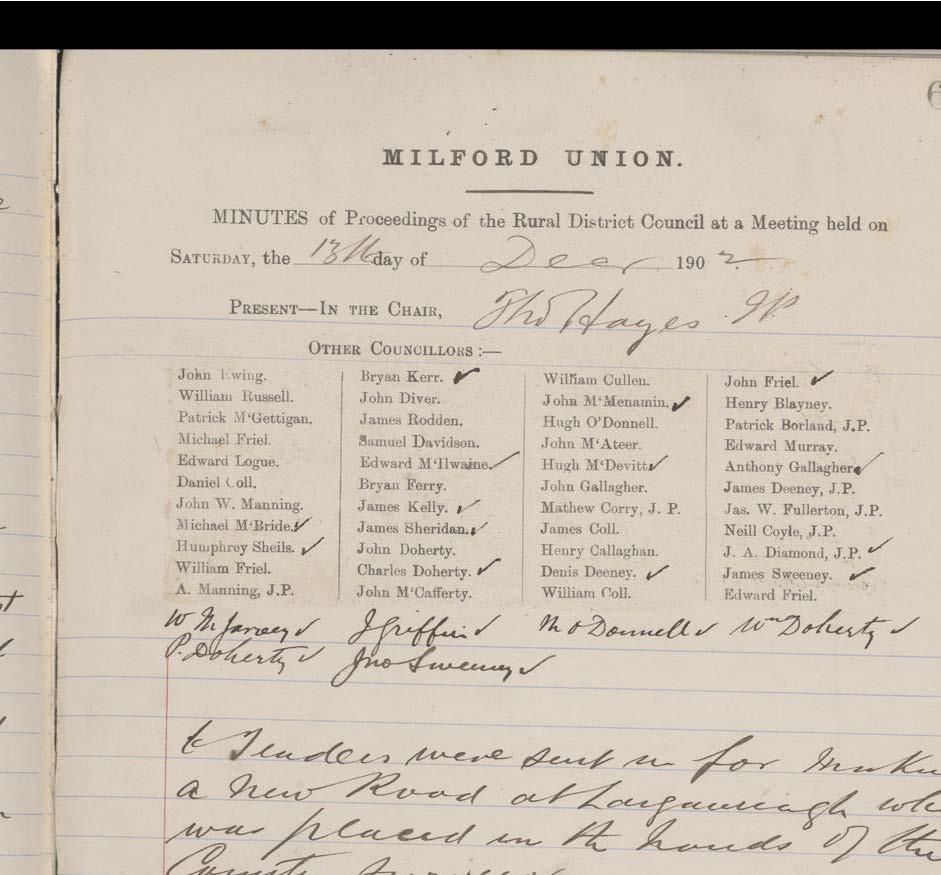 6
MILFORD UNION.
MINUTES of Proceedings of the Rural District Council at a Meeting held on
SATURDAY, the 13th day of Decr 1902.
PRESENT—IN THE CHAIR, Thos Hayes J.P.
OTHER COUNCILLORS :—
John Ewing.
William Russell.
Patrick M'Gettigan.
Michael Friel.
Edward Logue.
Daniel Coll.
John W. Manning.
Michael M'Bride. ✓
Humphrey Sheils. ✓
William Friel.
A. Manning, J.P.
Bryan Kerr. ✓
John Diver.
James Rodden.
Samuel Davidson.
Edward M'Ilwaine. ✓
Bryan Ferry.
James Kelly. ✓
James Sheridan. ✓
John Doherty.
Charles Doherty. ✓
John M'Cafferty.
William Cullen.
John M'Menamin. ✓
Hugh O'Donnell.
John M'Ateer.
Hugh M'Devitt. ✓
John Gallagher.
Mathew Corry, J. P.
James Coll.
Henry Callaghan.
Denis Deeney. ✓
William Coll.
John Friel. ✓
Henry Blayney.
Patrick Borland, J.P.
Edward Murray.
Anthony Gallagher. ✓
James Deeney, J.P.
Jas. W. Fullerton, J.P.
Neill Coyle, J.P.
J. A. Diamond, J.P. ✓
James Sweeney. ✓
Edward Friel.
W M Jarvey ✓ J Griffin ✓ M O Donnell ✓ Wm Doherty ✓
P. Doherty ✓ Jno Sweeney ✓
Tenders were sent in for
a New Road at
was placed in the hands of the
County